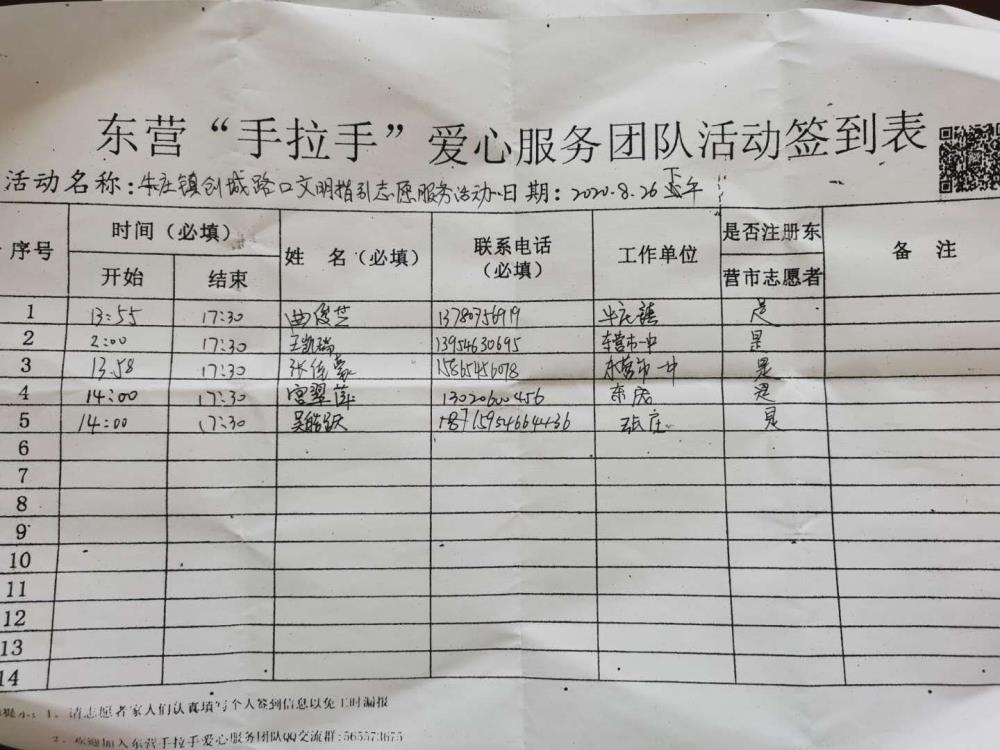 东营“手拉手”爱心服务团队活动签到表
活动名称：牛庄镇创城路口文明指引志愿服务活动 日期：2020.8.26 下午
序号 时间（必填） 姓 名（必填） 联系电话（必填） 工作单位 是否注册东营市志愿者 备 注
开始 结束
1 13:55 17:30 曲俊芝 13780756919 牛庄镇 是
2 2:00 17:30 王凯瑞 13954630695 东营市一中 是
3 13.58 17:30 张 15865456078 东营市一中 是
4 14:00 17:30 宫翠萍 13020600456 东 是
5 14:00 17:30 吴 庄 是
6
7
8
9
10
11
12
13
14
提示：1、请志愿者家人们认真填写个人签到信息以免工时漏报
2、欢迎加入东营手拉手爱心服务团队QQ交流群：565573675